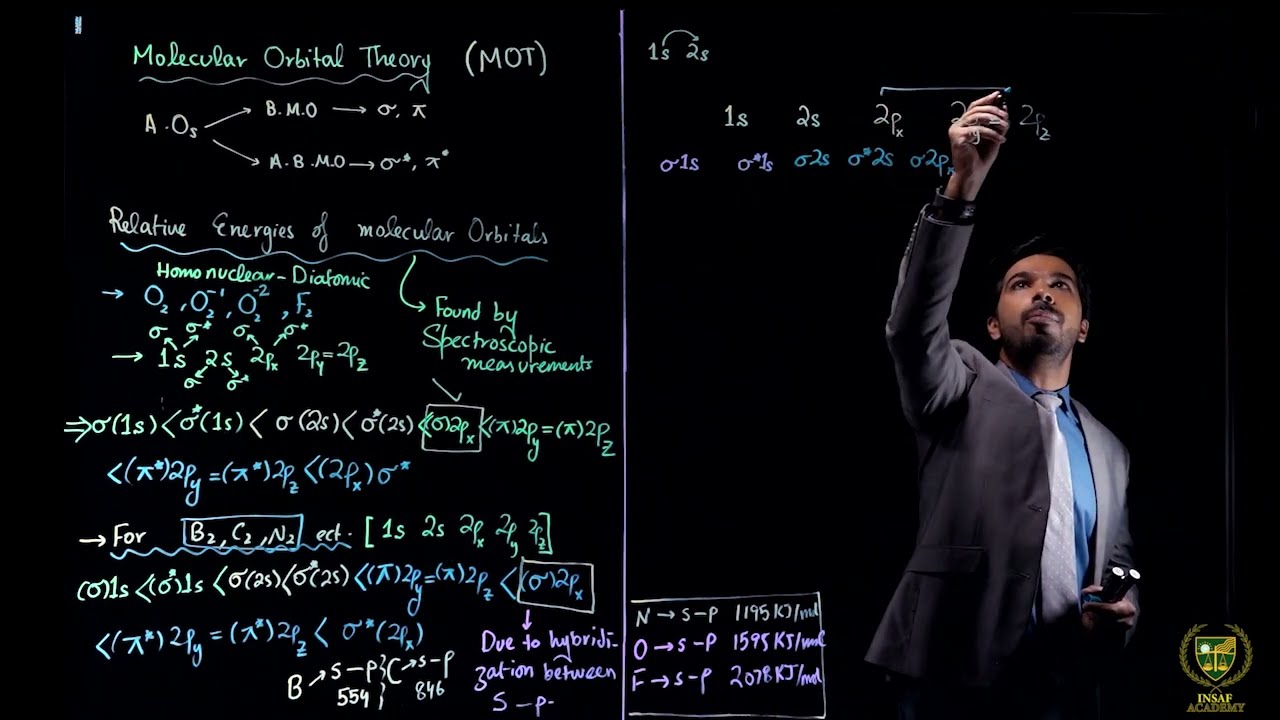 Molecular Orbital Theory (MOT)
A.Os
B.M.O → σ, π
A.B.M.O → σ*, π*
Relative Energies of molecular Orbitals
Homonuclear-Diatomic
→ O₂, O₂⁻¹, O₂⁻², F₂
Found by
Spectroscopic
measurements
σ σ* σ σ*
→ 1s 2s 2pₓ 2p_y = 2p_z
σ σ*
⇒ σ(1s) < σ*(1s) < σ(2s) < σ*(2s) < (σ)2pₓ < (π)2p_y = (π)2p_z
< (π*)2p_y = (π*)2p_z < (2pₓ)σ*
→ For B₂, C₂, N₂ ect. [1s 2s 2pₓ 2p_y 2p_z]
(σ)1s < (σ*)1s < σ(2s) < σ*(2s) < (π)2p_y = (π)2p_z < (σ)2pₓ
< (π*)2p_y = (π*)2p_z < σ*(2pₓ)
Due to hybridi-
zation between
S-p.
B → s-p } C → s-p
554 } 846
1s 2s
1s 2s 2pₓ 2p_z
σ1s σ*1s σ2s σ*2s σ2pₓ
N → s-p 1195 KJ/mol
O → s-p 1595 KJ/mol
F → s-p 2078 KJ/mol
INSAF
ACADEMY